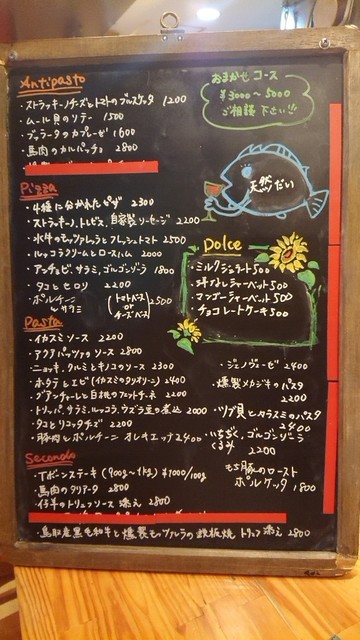 Antipasto
・ストラッキーノチーズとトマトのブルスケッタ 1200
・ムール貝のソテー 1500
・ブラータのカプレーゼ 1600
・馬肉のカルパッチョ 2800
おまかせコース
¥3000〜5000
ご相談下さい!!!
天然だい
Pizza
・4種に分かれたピザ 2300
・ストラッキーノ、トレビス、自家製ソーセージ 2200
・水牛のモッツァレラとフレッシュトマト 2500
・ルッコラクリームとロースハム 2000
・アンチョビ、サラミ、ゴルゴンゾーラ 1800
・タコとセロリ 2200
・ポルチーニとサラミ (トマトベース or チーズベース) 2500
Dolce
・ミルクジェラート500
・洋なしシャーベット500
・マンゴーシャーベット500
・チョコレートケーキ500
Pasta
・イカスミソース 2200
・アクアパッツァソース 2800
・ニョッキ、タルミとキノコのソース 2300
・ホタテとエビ(イカスミのタリオリーニ) 2400
・グアンチャーレと白桃の 2200
・トリッパ、サラミ、ルッコラ、ウズラ豆の煮込 2000
・タコとリコッタチーズ 2200
・豚肉とポルチーニ オレキエッテ2400
・ジェノヴェーゼ 2400
・燻製メカジキのパスタ 2200
・ツブ貝とカラスミのパスタ 2400
・いちじく、ゴルゴンゾーラ
くるみ 2200
Secondo
・Tボーンステーキ (900g〜1kg) ¥1000/100g
・馬肉のタリアータ 2800
・仔羊のトリュフソース添え 2800
もち豚のロースト
ポルケッタ 1800
・鳥取産黒毛和牛と燻製モッツァレラの鉄板焼 トリュフ添え 2800